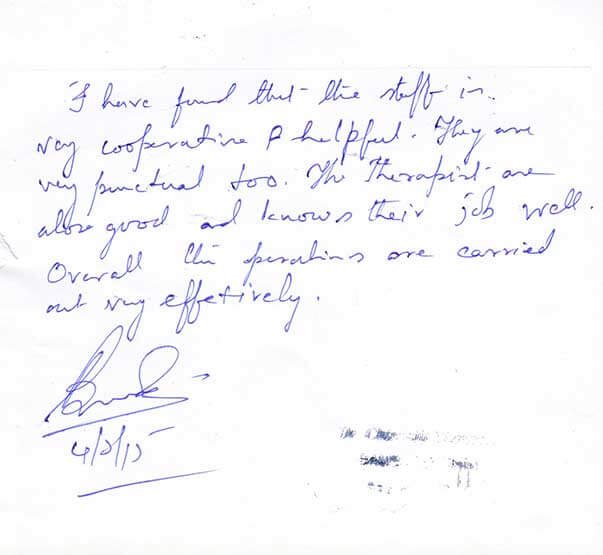 I have found that the staff is
very cooperative & helpful. They are
very punctual too. The Therapist are
also good and knows their job well.
Overall the operations are carried
out very effetively.
4/2/15